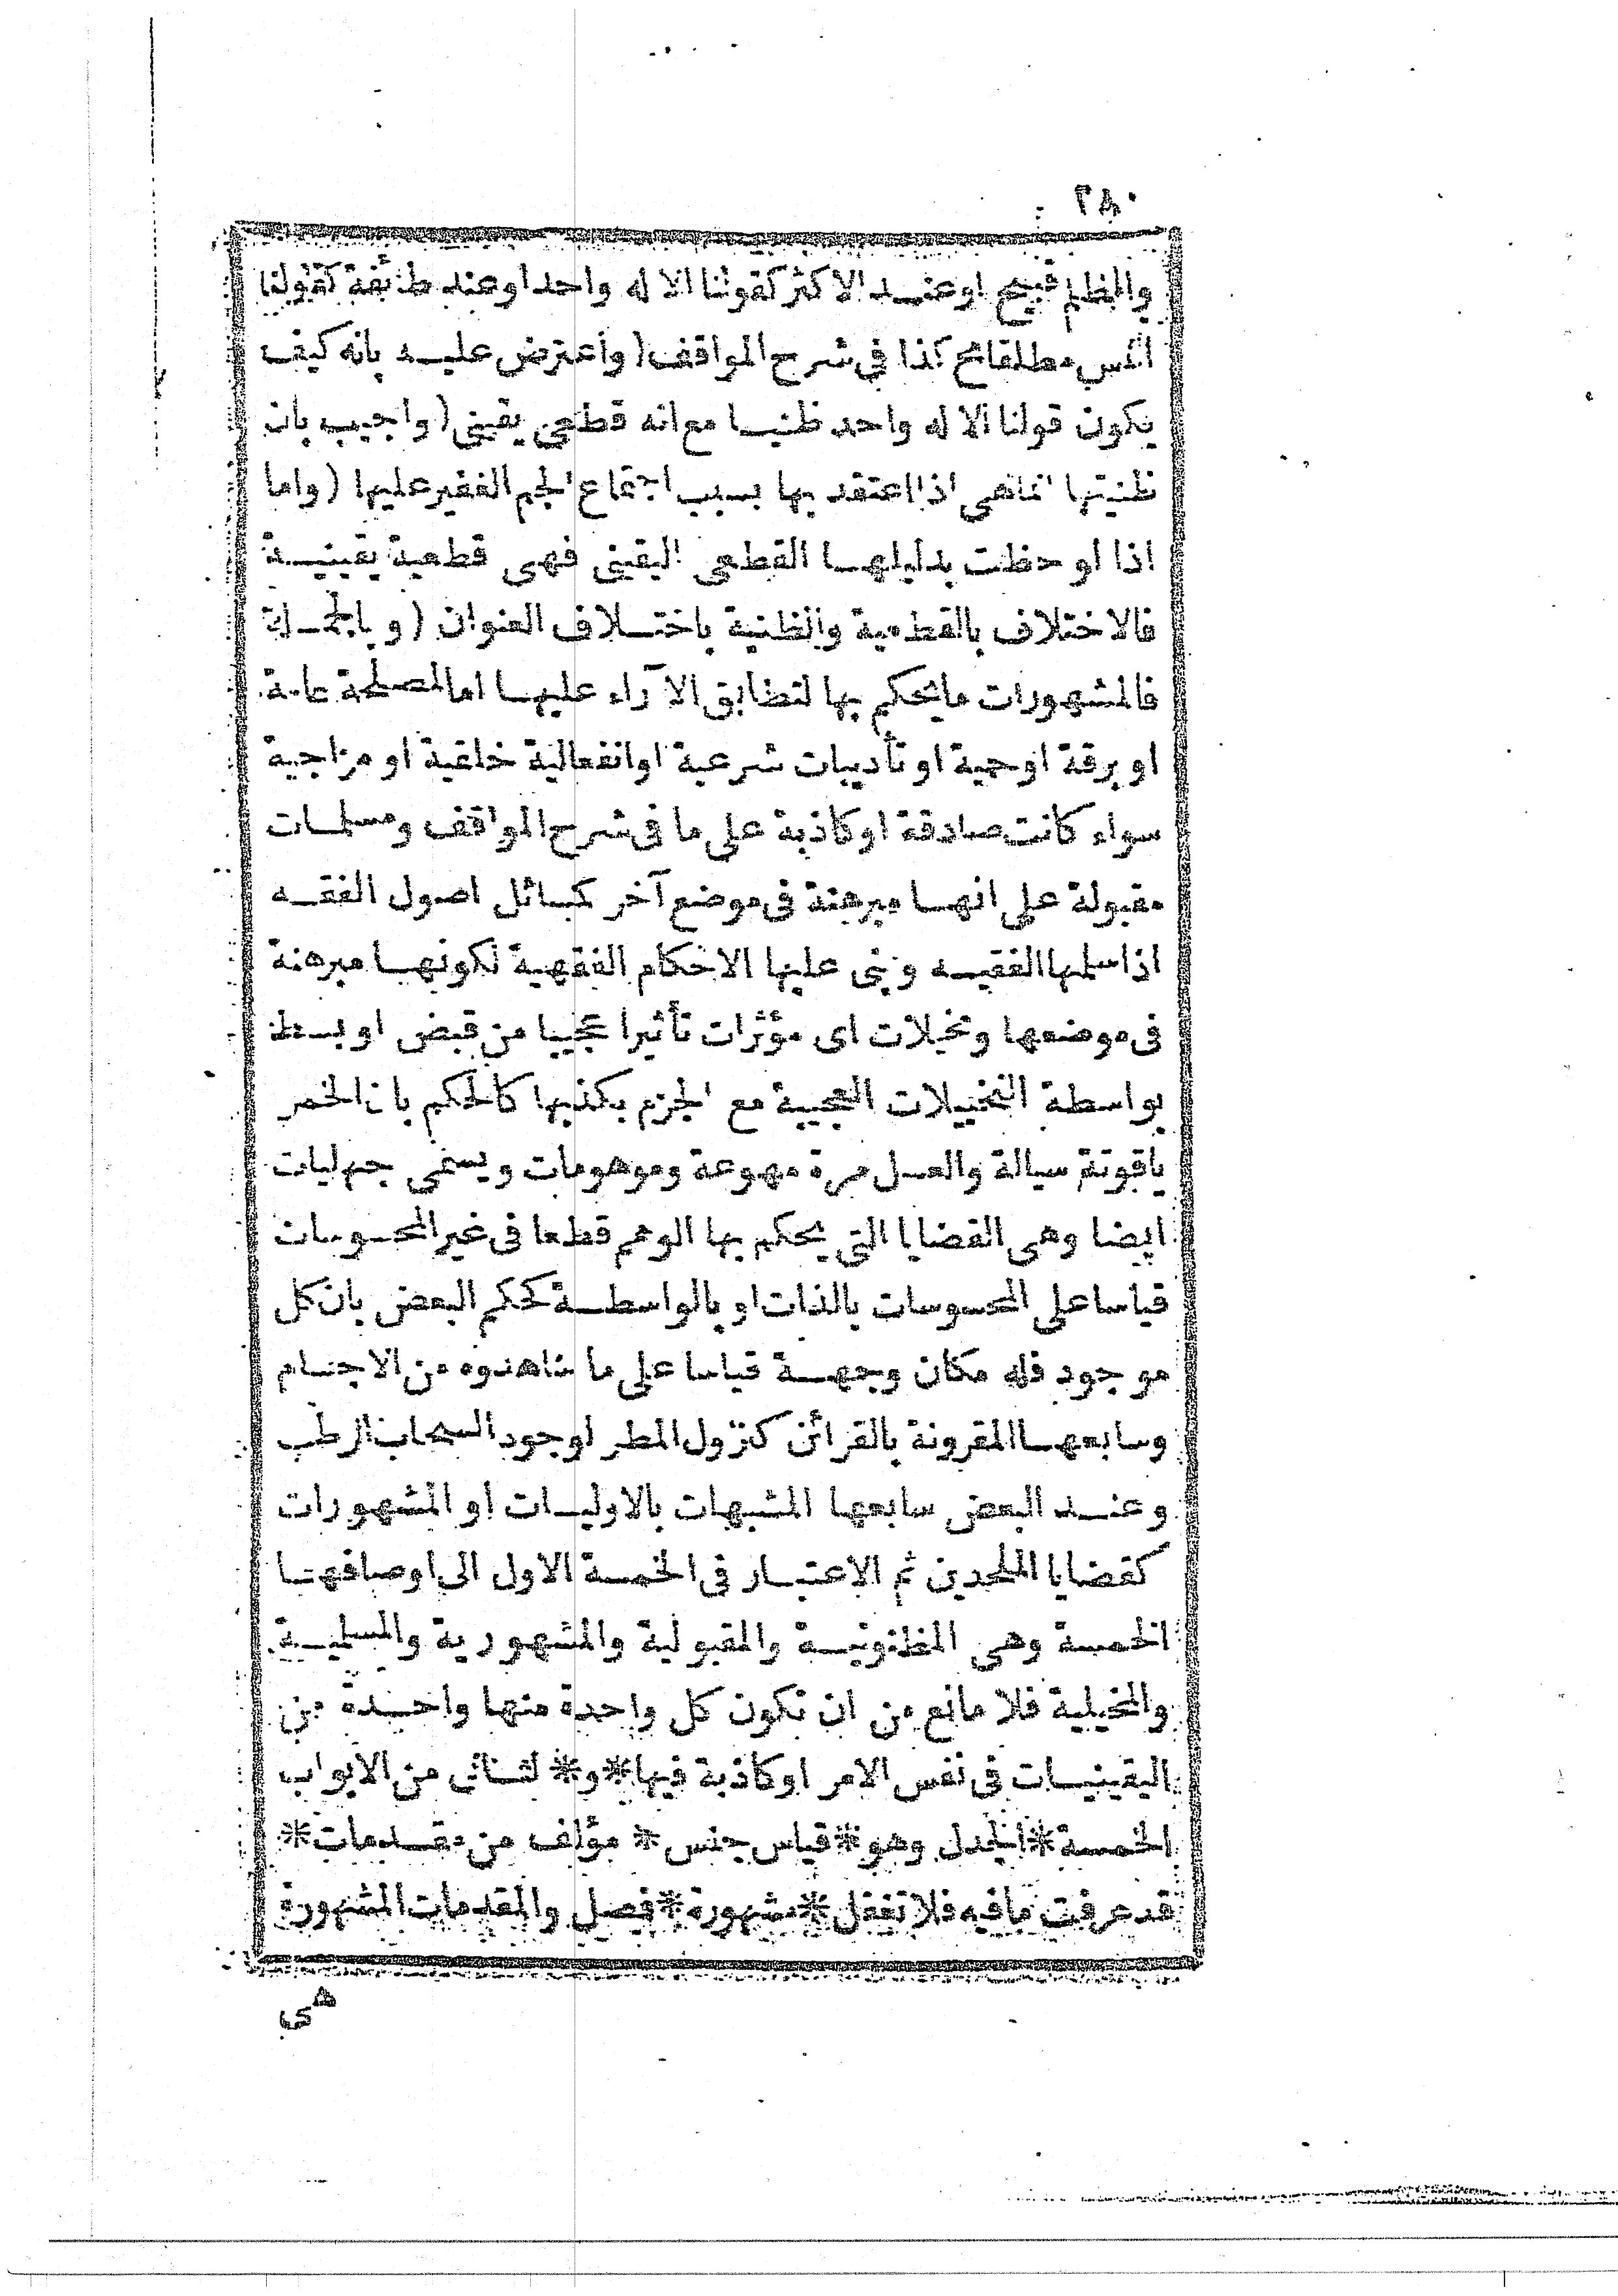 ٢٨٠
والظلم قبيح او عند الاكثر كقولنا الاله واحد او عند طائفة كقولنا
مطلقا كذا فى شرح المواقف (واعترض عليه بانه كيف
يكون قولنا الاله واحد ظنيا مع انه قطعى يقينى (واجيب بان
ظنيتها انماهى اذا اعتقد بها بسبب اجتماع الجم الغفير عليها (واما
اذا لوحظت بدليلها القطعى اليقينى فهى قطعية يقينية
فالاختلاف بالقطعية والظنية باختلاف العنوان (وبالجملة
فالمشهورات مايحكم بها لتطابق الآراء عليها اما لمصلحة عامة
او برقة اوحمية او تأديبات شرعية اوانفعالية خلقية او مزاجية
سواء كانت صادقة اوكاذبة على ما فى شرح المواقف ومسلمات
مقبولة على انها مبرهنة فى موضع آخر كمسائل اصول الفقه
اذا سلمها الفقيه وبنى عليها الاحكام الفقهية لكونها مبرهنة
فى موضعها ومخيلات اى مؤثرات تأثيرا عجيبا من قبض او بسط
بواسطة التخييلات العجيبة مع الجزم بكذبها كالحكم بان الخمر
ياقوتة سيالة والعسل مرة مهوعة وموهومات ويسمى
ايضا وهى القضايا التى يحكم بها الوهم قطعا فى غير المحسوسات
قياسا على المحسوسات بالذات او بالواسطة كحكم البعض بان كل
موجود فله مكان وجهة قياسا على ما شاهدوه من الاجسام
وسابعها المقرونة بالقرائن كنزول المطر لوجود السحاب الرطب
وعند البعض سابعها المشبهات بالاوليات او المشهورات
كقضايا الملحدين ثم الاعتبار فى الخمسة الاول الى اوصافها
الخمسة وهى المظنونية والمقبولية والمشهورية والمسلمية
والمخيلية فلا مانع من ان تكون كل واحدة منها واحدة من
اليقينيات فى نفس الامر اوكاذبة فيها * و * لثانى من الابواب
الخمسة * الجدل وهو * قياس جنس * مؤلف من مقدمات *
قد عرفت مافيه فلا تغفل * مشهورة * فصل والمقدمات المشهورة
هى